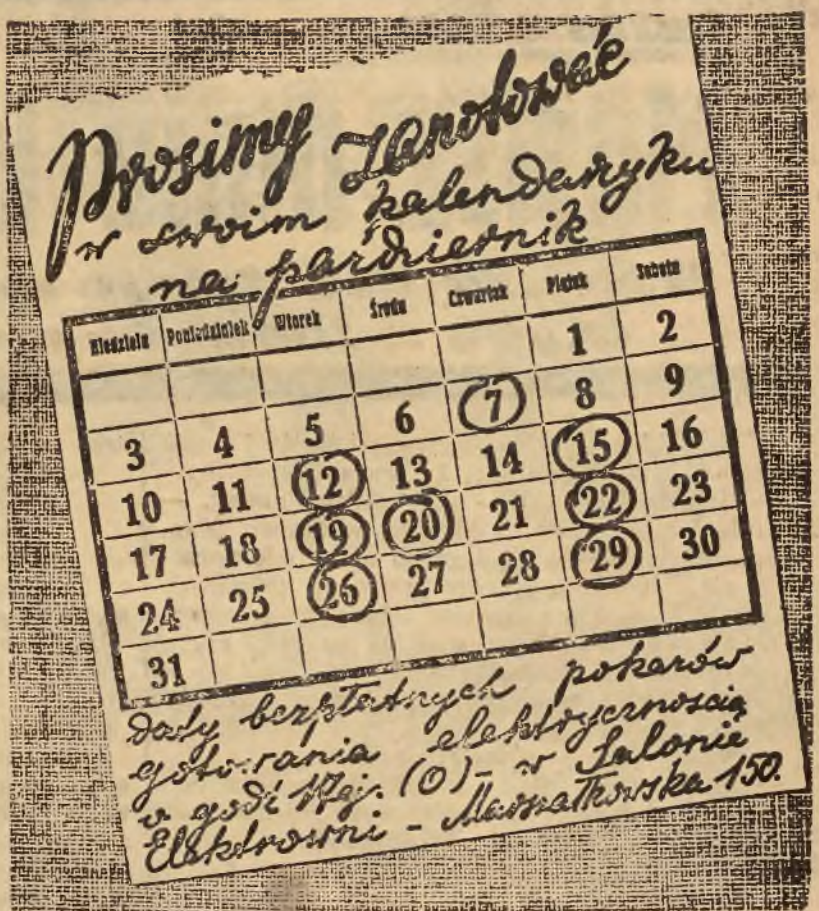 Prosimy zanotować
w swoim kalendarzyku
na październik
Niedziela Poniedziałek Wtorek Środa Czwartek Piątek Sobota
1 2
3 4 5 6 7 8 9
10 11 12 13 14 15 16
17 18 19 20 21 22 23
24 25 26 27 28 29 30
31
daty bezpłatnych pokazów
gotowania elektrycznością
w godz. (O)- w Salonie
Elektrowni - Marszałkowska 150.